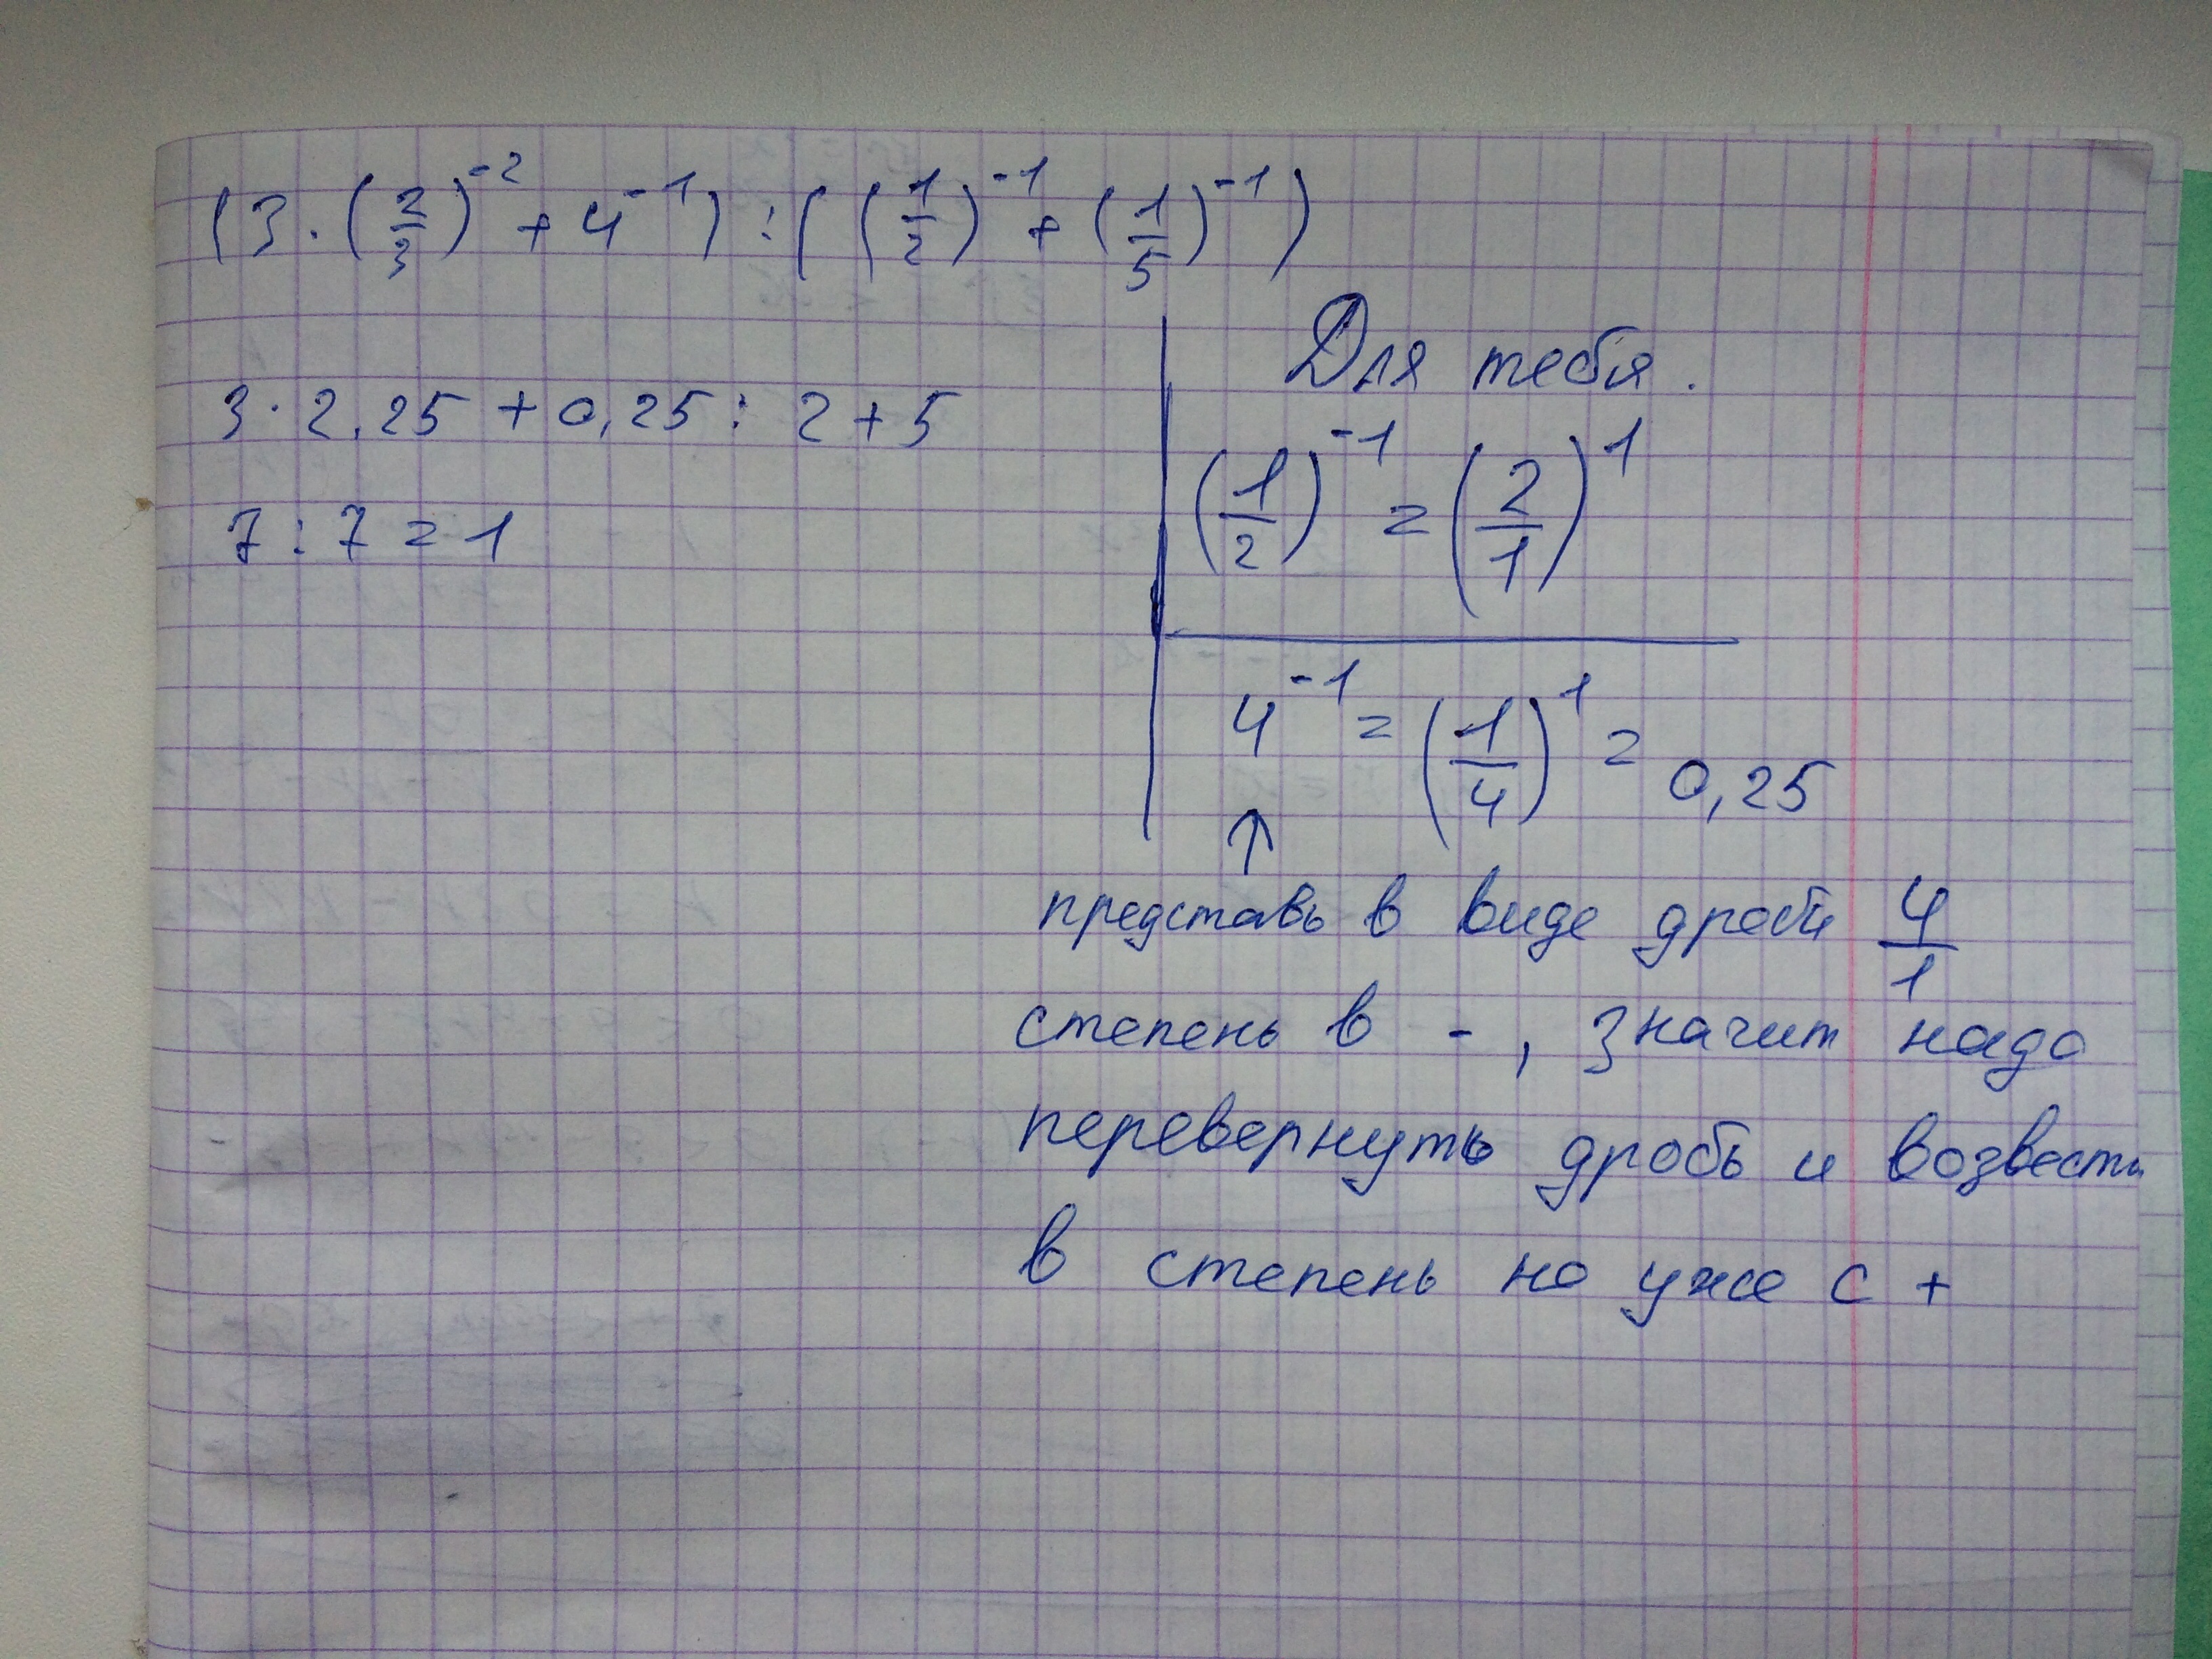 (3 · (2/3)^-2 + 4^-1) : ((1/2)^-1 + (1/5)^-1)
3 · 2,25 + 0,25 : 2 + 5
7 : 7 = 1
Для тебя.
(1/2)^-1 = (2/1)^1
4^-1 = (1/4)^1 = 0,25
↑
представь в виде дроби 4/1
степень в - , значит надо
перевернуть дробь и возвести
в степень но уже с +